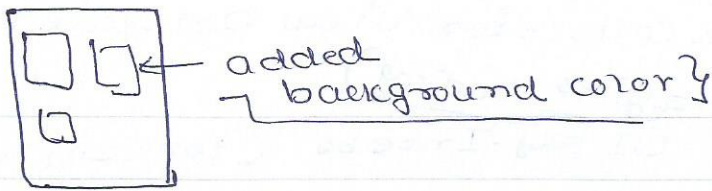 added
background color}